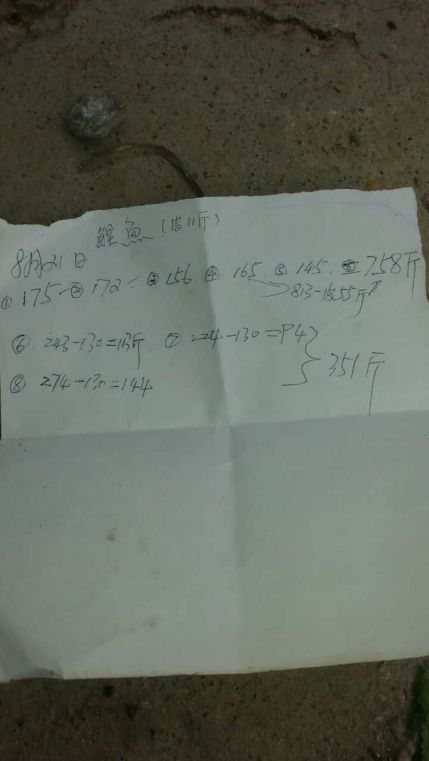 8月21日 鲤鱼(皮11斤)
① 175 ② 172 ③ 156 ④ 165 ⑤ 145 = 758斤
813-18.55斤
⑥ 243-130=113斤 ⑦ 224-130=94
⑧ 274-130=144 } 351斤